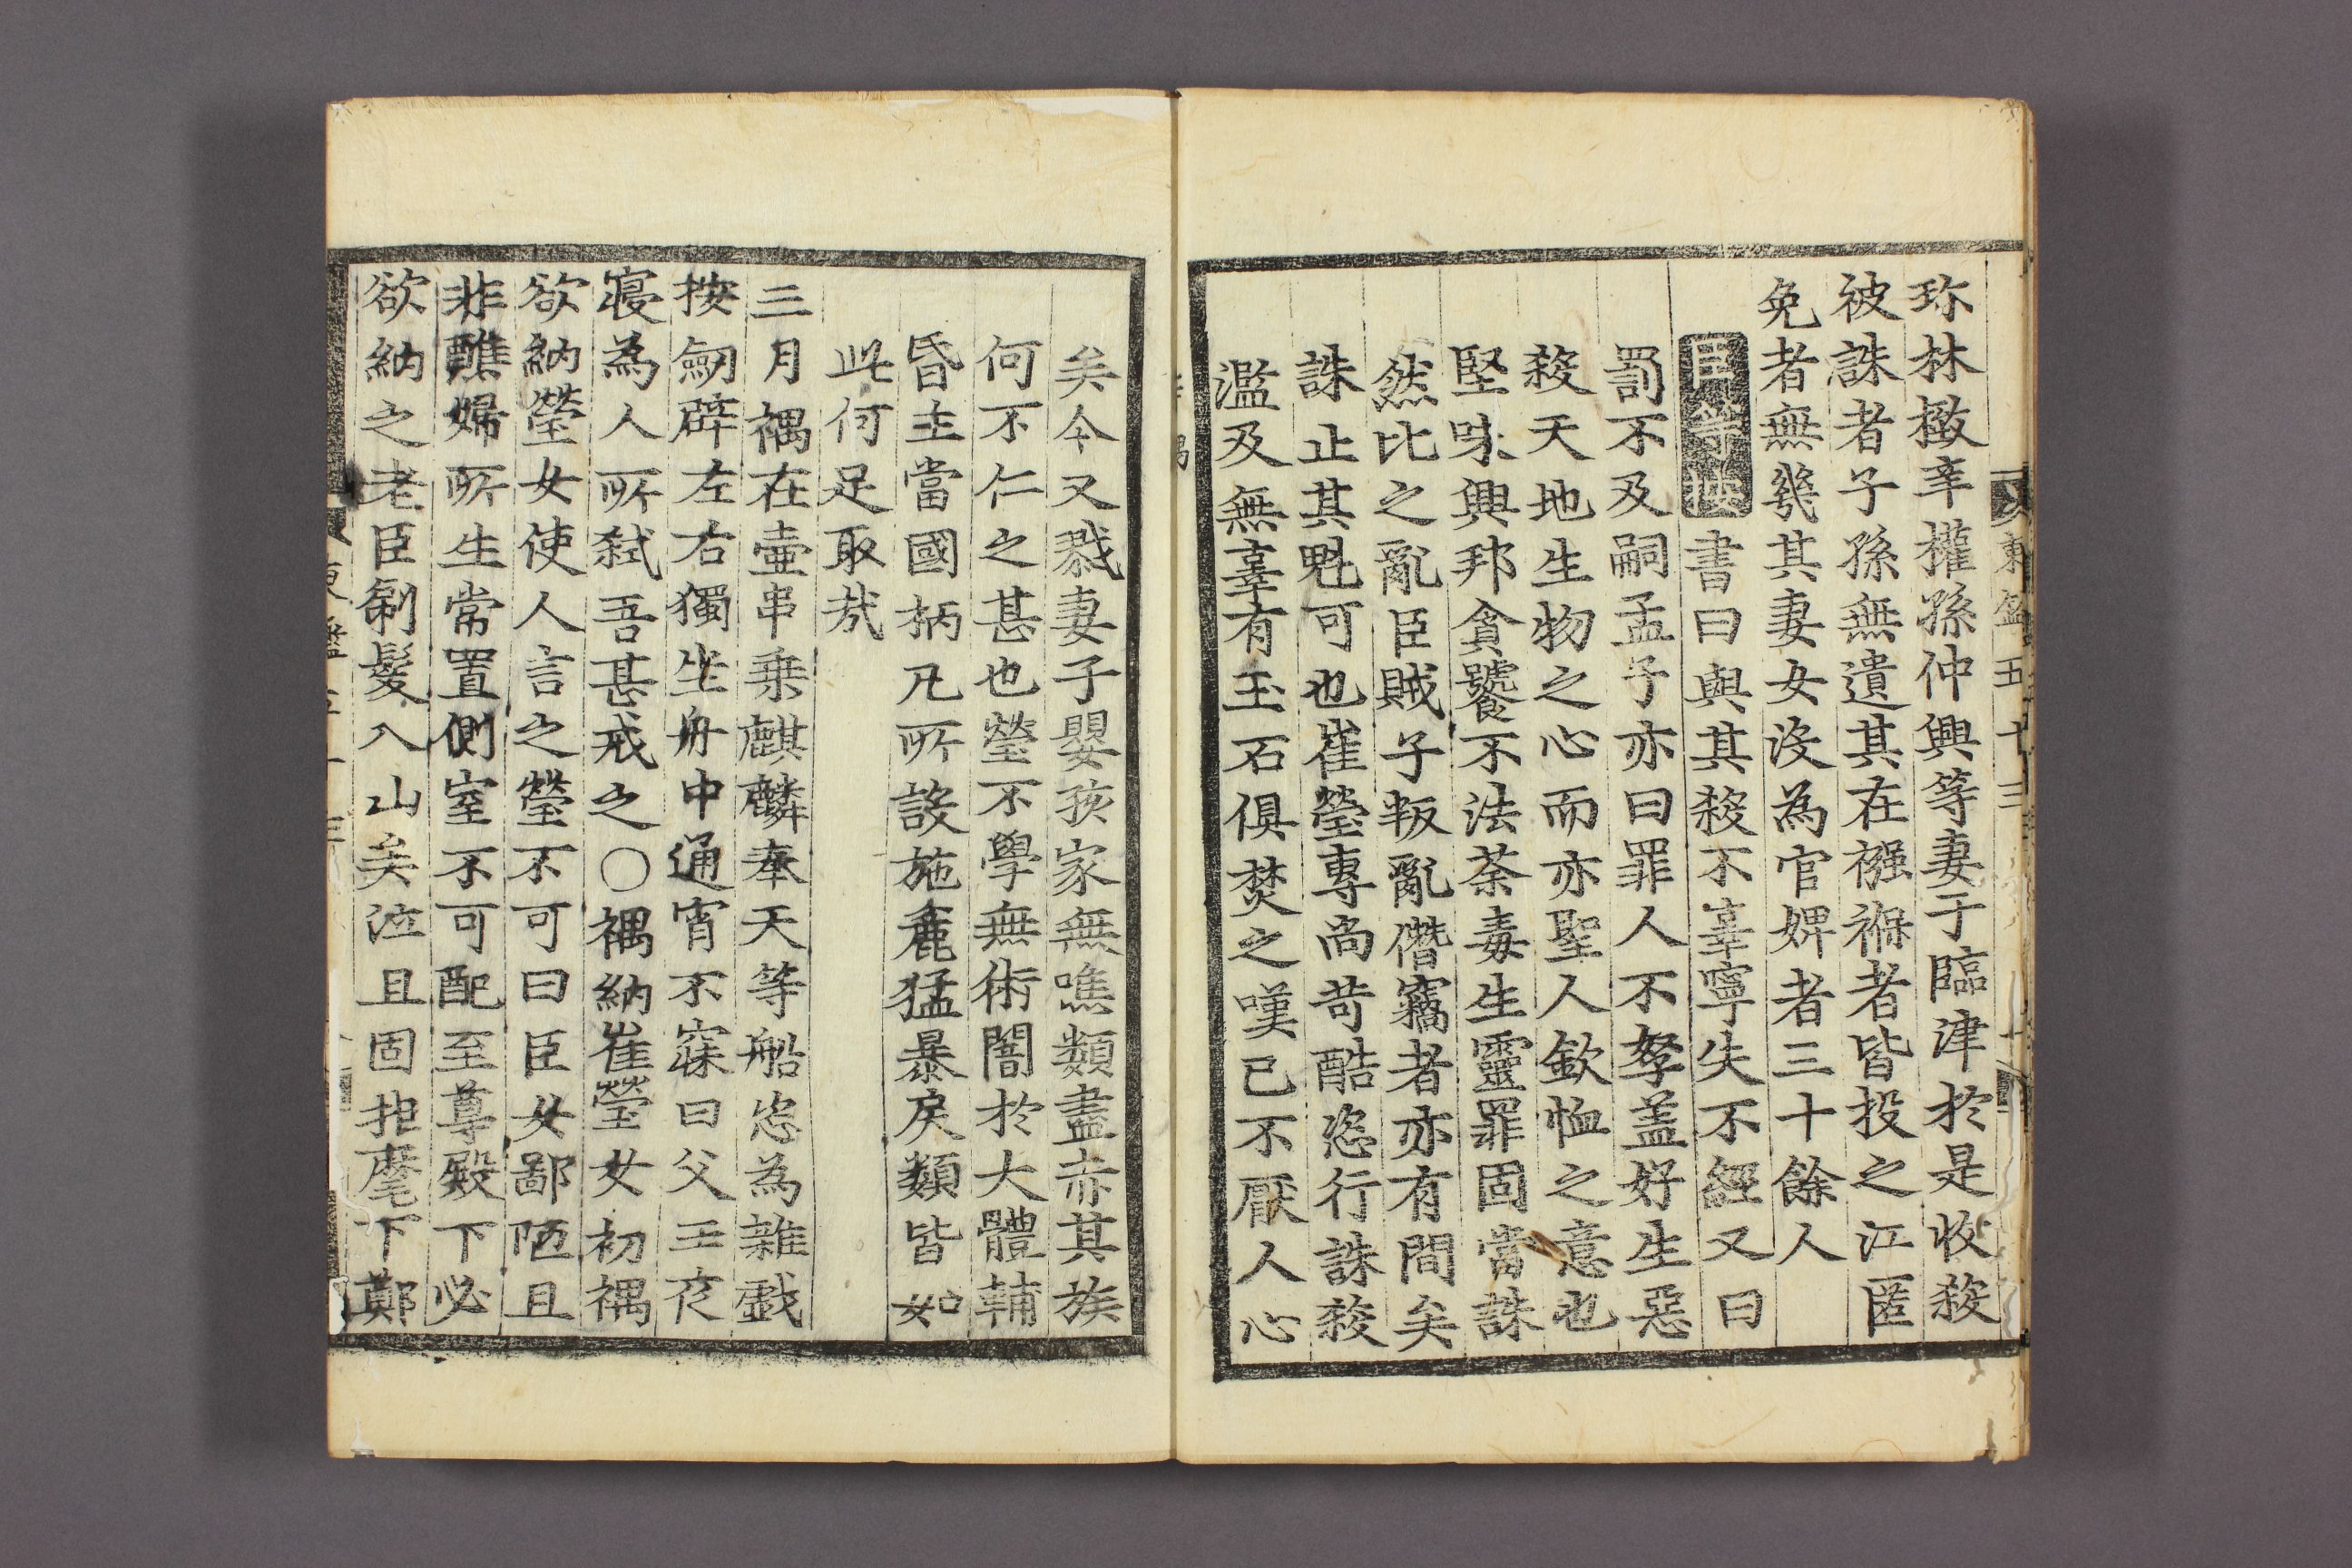 東鑑五十三
珎林㩳幸權孫仲興等妻于臨津於是收殺
被誅者子孫無遺其在襁褓者皆投之江匿
免者無幾其妻女沒為官婢者三十餘人
臣等按書曰與其殺不辜寧失不經又曰
罰不及嗣孟子亦曰罪人不孥盖好生惡
殺天地生物之心而亦聖人欽恤之意也
堅味興邦貪饕不法荼毒生靈罪固當誅
然比之亂臣賊子叛亂僭竊者亦有間矣
誅止其魁可也崔瑩專尚苛酷恣行誅殺
濫及無辜有玉石俱焚之嘆已不厭人心
矣今又戮妻子嬰孩家無噍類盡赤其族
何不仁之甚也瑩不學無術闇於大體輔
昏主當國柄凡所設施麁猛暴戾類皆如
此何足取㢤
三月禑在壷串乗麒麟奉天等船恣為雜戱
按劒辟左右獨坐舟中通宵不寐曰父王夜
寢為人所弑吾甚戒之〇禑納崔瑩女初禑
欲納瑩女使人言之瑩不可曰臣女鄙陋且
非醮婦所生常置側室不可配至尊殿下必
欲納之老臣剃髮入山矣泣且固拒麾下鄭